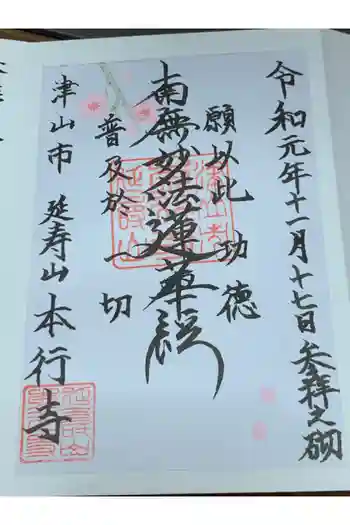 令和元年十一月十七日 参拝之砌
願以此功徳
南無妙法蓮華経
普及於一切
津山市 延寿山 本行寺